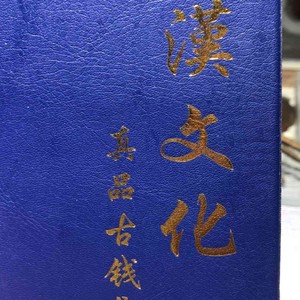 漢文化
真品古钱